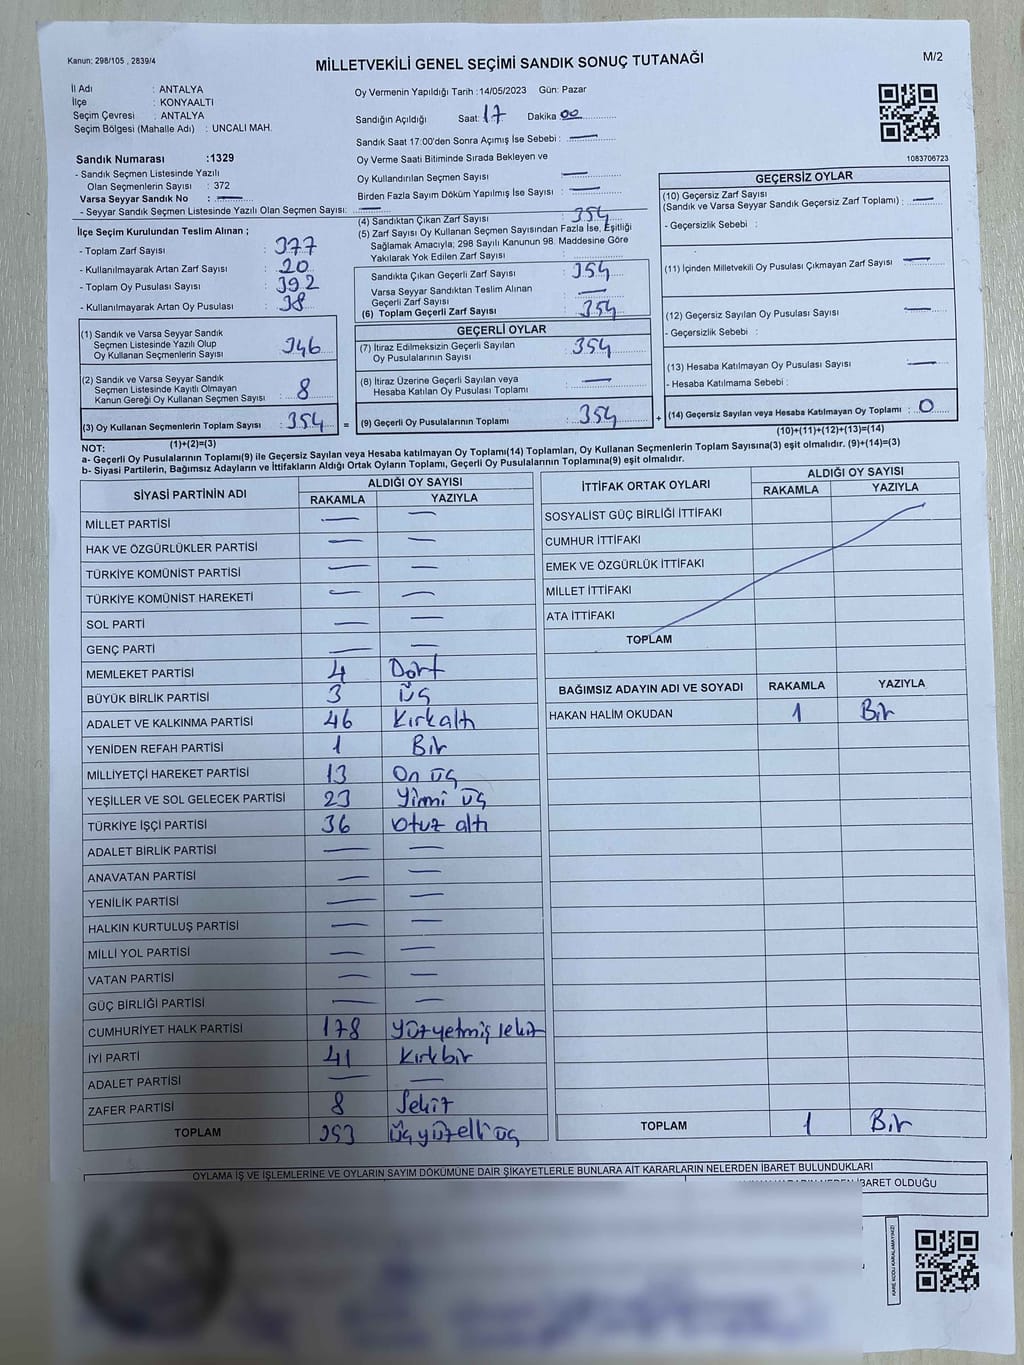 Kanun: 298/105 , 2839/4
MİLLETVEKİLİ GENEL SEÇİMİ SANDIK SONUÇ TUTANAĞI
M/2
İl Adı : ANTALYA
İlçe : KONYAALTI
Seçim Çevresi : ANTALYA
Seçim Bölgesi (Mahalle Adı) : UNCALI MAH.
Sandık Numarası :1329
- Sandık Seçmen Listesinde Yazılı
Olan Seçmenlerin Sayısı : 372
Varsa Seyyar Sandık No : —
- Seyyar Sandık Seçmen Listesinde Yazılı Olan Seçmen Sayısı: —
Oy Vermenin Yapıldığı Tarih :14/05/2023 Gün: Pazar
Sandığın Açıldığı Saat: 17 Dakika 00
Sandık Saat 17:00'den Sonra Açımış İse Sebebi : —
Oy Verme Saati Bitiminde Sırada Bekleyen ve
Oy Kullandırılan Seçmen Sayısı : —
Birden Fazla Sayım Döküm Yapılmış İse Sayısı : —
1083706723
İlçe Seçim Kurulundan Teslim Alınan ;
- Toplam Zarf Sayısı : 377
- Kullanılmayarak Artan Zarf Sayısı : 20
- Toplam Oy Pusulası Sayısı : 392
- Kullanılmayarak Artan Oy Pusulası : 38
(1) Sandık ve Varsa Seyyar Sandık
Seçmen Listesinde Yazılı Olup
Oy Kullanan Seçmenlerin Sayısı : 346
(2) Sandık ve Varsa Seyyar Sandık
Seçmen Listesinde Kayıtlı Olmayan
Kanun Gereği Oy Kullanan Seçmen Sayısı : 8
(3) Oy Kullanan Seçmenlerin Toplam Sayısı : 354 =
(1)+(2)=(3)
(4) Sandıktan Çıkan Zarf Sayısı : 354
(5) Zarf Sayısı Oy Kullanan Seçmen Sayısından Fazla İse, Eşitliği
Sağlamak Amacıyla; 298 Sayılı Kanunun 98. Maddesine Göre
Yakılarak Yok Edilen Zarf Sayısı :
Sandıkta Çıkan Geçerli Zarf Sayısı : 354
Varsa Seyyar Sandıktan Teslim Alınan
Geçerli Zarf Sayısı : —
(6) Toplam Geçerli Zarf Sayısı : 354
GEÇERLİ OYLAR
(7) İtiraz Edilmeksizin Geçerli Sayılan
Oy Pusulalarının Sayısı : 354
(8) İtiraz Üzerine Geçerli Sayılan veya
Hesaba Katılan Oy Pusulası Toplamı : —
(9) Geçerli Oy Pusulalarının Toplamı : 354 +
GEÇERSİZ OYLAR
(10) Geçersiz Zarf Sayısı
(Sandık ve Varsa Seyyar Sandık Geçersiz Zarf Toplamı) : —
- Geçersizlik Sebebi :
(11) İçinden Milletvekili Oy Pusulası Çıkmayan Zarf Sayısı : —
(12) Geçersiz Sayılan Oy Pusulası Sayısı : —
- Geçersizlik Sebebi :
(13) Hesaba Katılmayan Oy Pusulası Sayısı : —
- Hesaba Katılmama Sebebi :
(14) Geçersiz Sayılan veya Hesaba Katılmayan Oy Toplamı : 0
(10)+(11)+(12)+(13)=(14)
NOT:
a- Geçerli Oy Pusulalarının Toplamı(9) ile Geçersiz Sayılan veya Hesaba katılmayan Oy Toplamı(14) Toplamları, Oy Kullanan Seçmenlerin Toplam Sayısına(3) eşit olmalıdır. (9)+(14)=(3)
b- Siyasi Partilerin, Bağımsız Adayların ve İttifakların Aldığı Ortak Oyların Toplamı, Geçerli Oy Pusulalarının Toplamına(9) eşit olmalıdır.
SİYASİ PARTİNİN ADI ALDIĞI OY SAYISI
RAKAMLA YAZIYLA
MİLLET PARTİSİ — —
HAK VE ÖZGÜRLÜKLER PARTİSİ — —
TÜRKİYE KOMÜNİST PARTİSİ — —
TÜRKİYE KOMÜNİST HAREKETİ — —
SOL PARTİ — —
GENÇ PARTİ — —
MEMLEKET PARTİSİ 4 Dört
BÜYÜK BİRLİK PARTİSİ 3 üç
ADALET VE KALKINMA PARTİSİ 46 Kırkaltı
YENİDEN REFAH PARTİSİ 1 Bir
MİLLİYETÇİ HAREKET PARTİSİ 13 On üç
YEŞİLLER VE SOL GELECEK PARTİSİ 23 Yirmi üç
TÜRKİYE İŞÇİ PARTİSİ 36 otuz altı
ADALET BİRLİK PARTİSİ — —
ANAVATAN PARTİSİ — —
YENİLİK PARTİSİ — —
HALKIN KURTULUŞ PARTİSİ — —
MİLLİ YOL PARTİSİ — —
VATAN PARTİSİ — —
GÜÇ BİRLİĞİ PARTİSİ — —
CUMHURİYET HALK PARTİSİ 178 Yüzyetmiş sekiz
İYİ PARTİ 41 Kırkbir
ADALET PARTİSİ — —
ZAFER PARTİSİ 8 Sekiz
TOPLAM 353 üçyüzelli üç
İTTİFAK ORTAK OYLARI ALDIĞI OY SAYISI
RAKAMLA YAZIYLA
SOSYALİST GÜÇ BİRLİĞİ İTTİFAKI
CUMHUR İTTİFAKI
EMEK VE ÖZGÜRLÜK İTTİFAKI
MİLLET İTTİFAKI
ATA İTTİFAKI
TOPLAM
BAĞIMSIZ ADAYIN ADI VE SOYADI RAKAMLA YAZIYLA
HAKAN HALİM OKUDAN 1 Bir
TOPLAM 1 Bir
OYLAMA İŞ VE İŞLEMLERİNE VE OYLARIN SAYIM DÖKÜMÜNE DAİR ŞİKAYETLERLE BUNLARA AİT KARARLARIN NELERDEN İBARET BULUNDUKLARI
İBARET OLDUĞU
KARE KODU KARALAMAYINIZ!